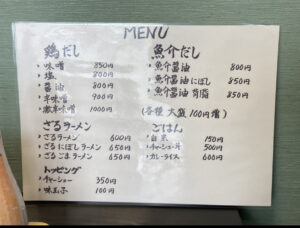 MENU
鶏だし
・味噌 850円
・塩 800円
・醤油 800円
・辛味噌 900円
・激辛味噌 1000円
ざるラーメン
・ざるラーメン 600円
・ざるにぼしラーメン 650円
・ざるごまラーメン 650円
トッピング
・チャーシュー 350円
・味玉子 100円
魚介だし
・魚介醤油 800円
・魚介醤油にぼし 850円
・魚介醤油背脂 850円
(各種大盛100円増)
ごはん
・白米 150円
・チャーシュー丼 500円
・カレーライス 600円